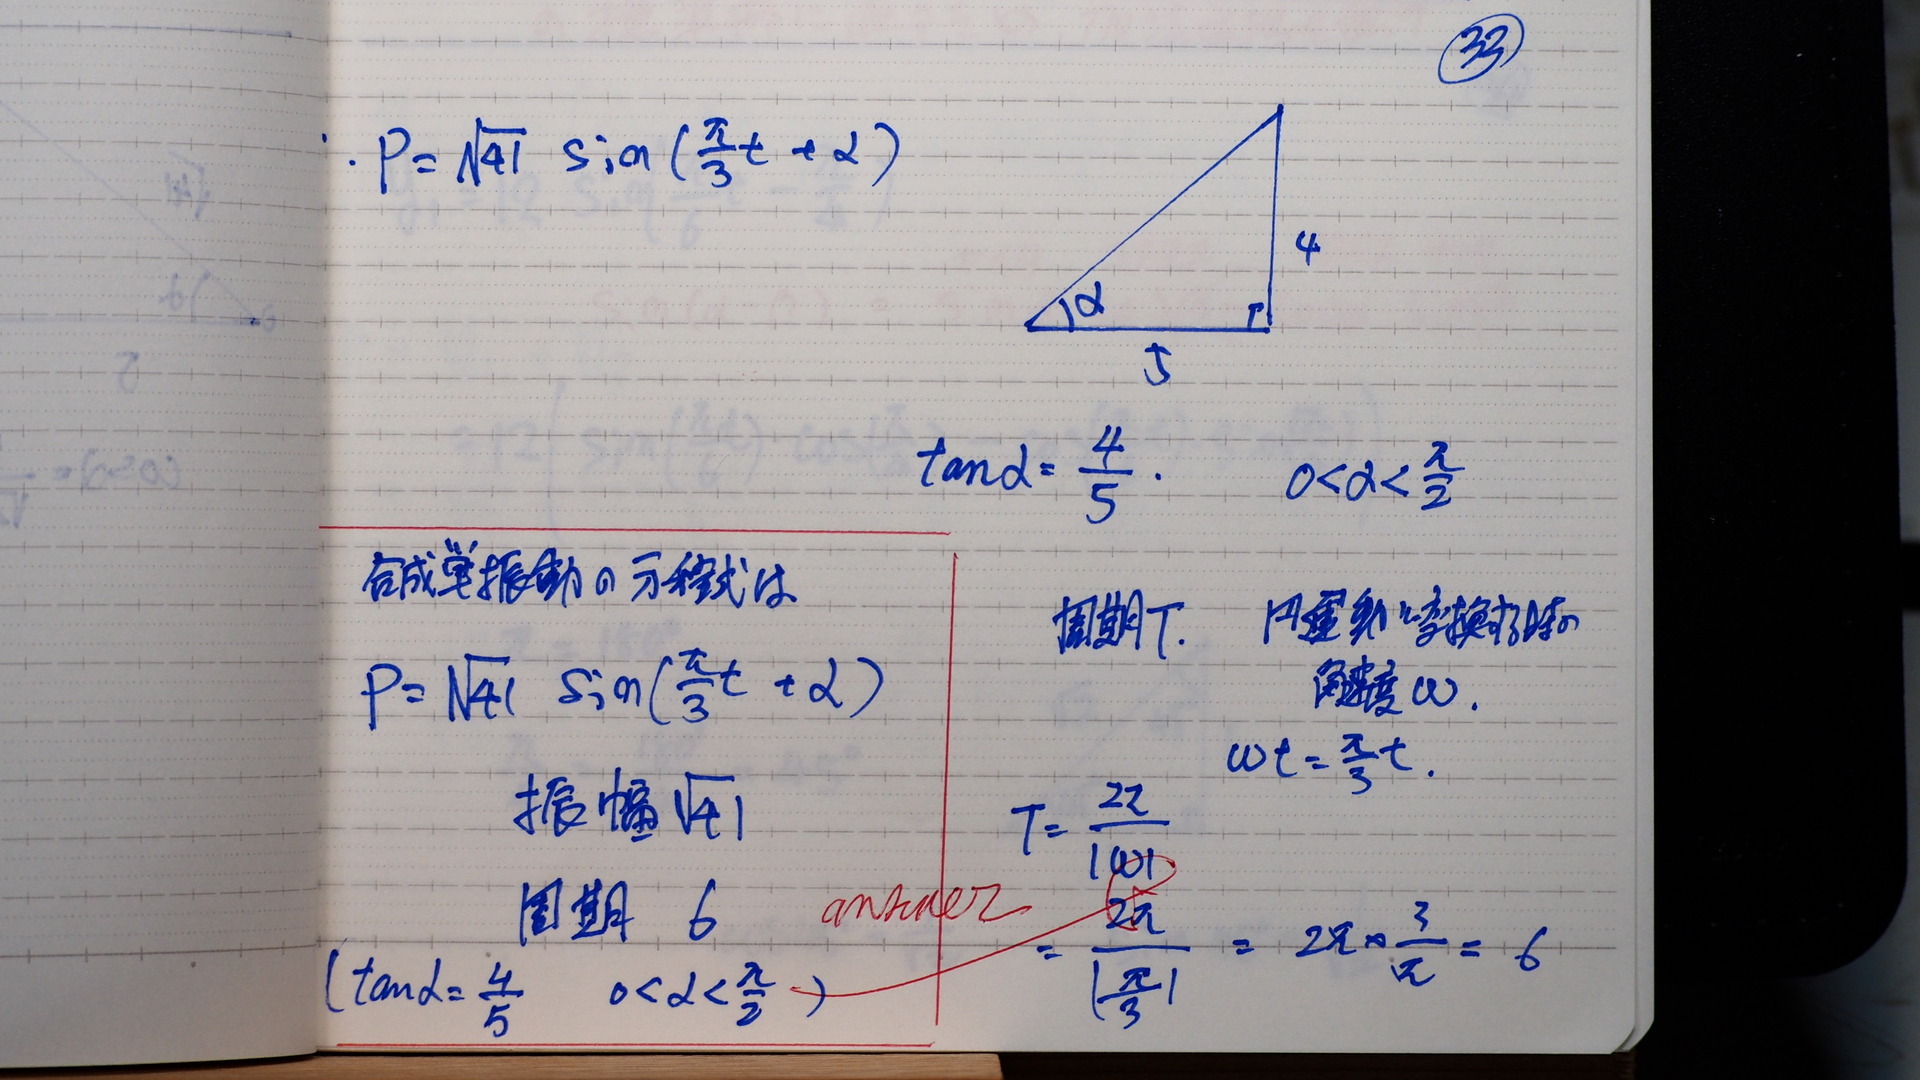 33
∴ P = √41 sin(π/3 t + α)
α
4
5
tanα = 4/5. 0<α<π/2
合成単振動の方程式は
P = √41 sin(π/3 t + α)
振幅 √41
周期 6
(tanα = 4/5 0<α<π/2)
answer
周期T. 円運動に変換する時の
角速度 ω.
ωt = π/3 t.
T = 2π/|ω|
= 2π/|π/3| = 2π × 3/π = 6